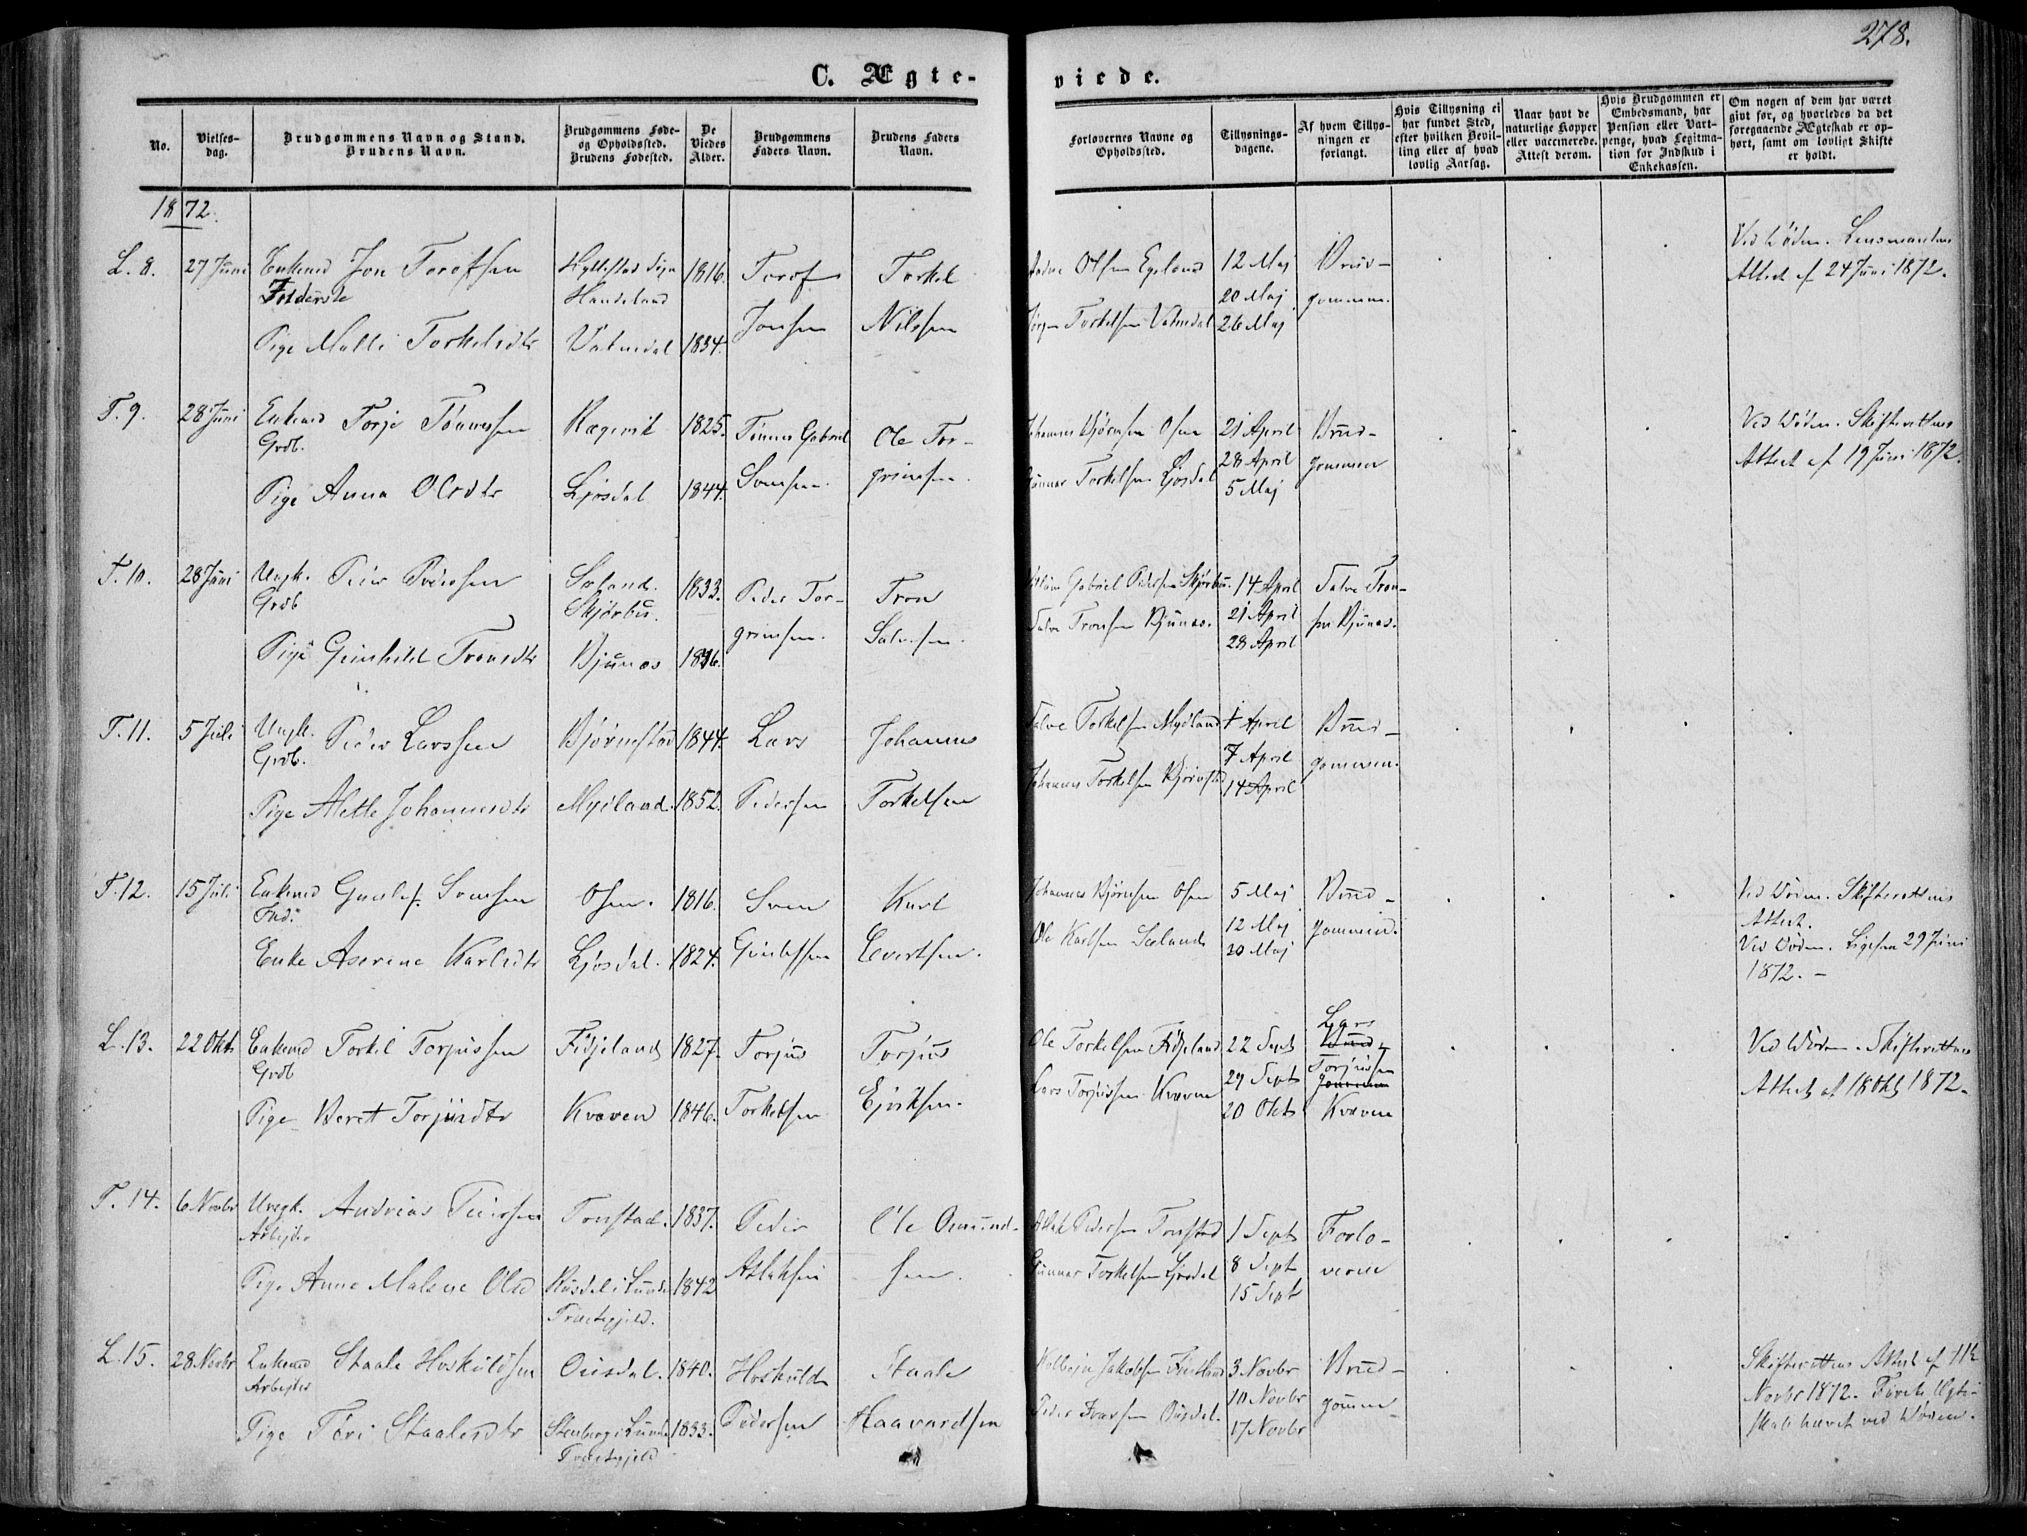 278.
C. Ægte-
viede.
No.
Vielses-
dag.
Brudgommens Navn og Stand.
Brudens Navn.
Brudgommens Føde-
og Opholdssted.
Brudens Fødested.
De
Viedes
Alder.
Brudgommens
Faders Navn.
Brudens Faders
Navn.
Forlovernes Navne og
Opholdssted.
Tillysnings-
dagene.
Af hvem Tillys-
ningen er
forlangt.
Hvis Tillysning ei
har fundet Sted,
efter hvilken Bevil-
ling eller af hvad
lovlig Aarsag.
Naar havt de
naturlige Kopper
eller vaccinerede.
Attest derom.
Hvis Brudgommen er
Embedsmand, har
Pension eller Vart-
penge, hvad Legitima-
tion for Indskud i
Enkekassen.
Om nogen af dem har været
gift før, og hvorledes da det
foregaaende Ægteskab er op-
hørt, samt om lovligt Skifte
er holdt.
1872.
L. 8. 27 Juni Enkemd Jon Torofsen
Pige Malli Torkelsdtr
Hyllestad Sogn
Handeland
Vatnedal
1816.
1834.
Torof
Jonsen
Torkel
Nilssen
Olsen Egeland
Jørgen Torkelsen Vatnedal
12 Maj
20 Maj
26 Maj
Brud-
gommen.
Ved Døden. Lensmandens
Attest af 24 Juni 1872.
T. 9. 28 Juni Enkemd Torje Tønnessen
Grdb.
Pige Anna Olsdtr
Kægevik
Ljosdal
1825.
1844.
Tønnes Gabriel
Svensen.
Ole Tor-
grimsen.
Johannes Bjørnsen Osen
Gunnar Torkelsen Ljosdal
21 April
28 April
5 Maj
Brud-
gommen
Ved Døden. Skifterettens
Attest af 19 Juni 1872.
T. 10. 28 Juni Ungk. Peder Pedersen
Grdb
Pige Gunhild Tronsdtr
Sæland.
Skjørbu.
Bjunæs
1833.
1836.
Peder Tor-
grimsen.
Tron
Salvesen.
Gabriel Pedersen Skjørbu.
Salve Tronsen Bjunæs.
14 April
21 April
28 April
Salve Tron-
sen Bjunæs.
T. 11. 5 Juli Ungk. Peder Larssen
Grdb.
Pige Alette Johannesdtr
Bjørnestad
Myoland.
1844.
1852.
Lars
Pedersen
Johannes
Torkelsen
Salve Torkelsen Myoland
Johannes Torkelsen Bjørnestad
1 April
7 April
14 April
Brud-
gommen.
T. 12. 15 Juli Enkemd Gunlef. Svensen
Enke Aserine Karlsdtr
Osen.
Ljosdal.
1816.
1824.
Sven
Gunlefsen
Karl
Evertsen.
Johannes Bjørnsen Osen
Ole Karlsen Sæland
5 Maj
12 Maj
20 Maj
Brud-
gommen.
Ved Døden. Skifterettens
Attest.
Ved Døden. Ligesaa 29 Juni
1872. –
L. 13. 22 Okt Enkemd Torkel Torjussen
Grdb
Pige Berit Torjusdtr
Fidjeland
Kvæven
1827.
1846.
Torjus
Torkelsen
Torjus
Ejriksen.
Ole Torkelsen Fidjeland
Lars Torjussen Kvæven
22 Sept
29 Sept
20 Okt
Lars
Brud-
Torjussen
gommen
Kvæven
Ved Døden. Skifterettens
Attest af 18 Okt 1872.
T. 14. 6 Novbr Ungk. Andreas Pedersen
Arbejder
Pige Anne Malene Olsd
Tonstad.
Rusdal i Lunde
Præstegjeld.
1837.
1842
Peder
Atlaksen
Ole Omund-
sen.
Atlak Pedersen Tonstad
Gunnar Torkelsen Ljosdal
1 Sept
8 Sept
15 Sept
Forlo-
verne
L. 15. 28 Novbr Enkemd Staale Hoskuldsen
Arbejder
Pige Tori Staalesdtr
Ousdal.
Stenberg i Lunde
Præstegjeld
1840.
1833.
Hoskuld
Pedersen
Staale
Haavardsen
Kolbejn Jakobsen
Peder Ivarsen Ousdal.
3 Novbr
10 Novbr
17 Novbr
Brud-
gommen
Skifterettens Attest af 11te
Novbr 1872. Første Ægte-
skab hævet ved Døden.